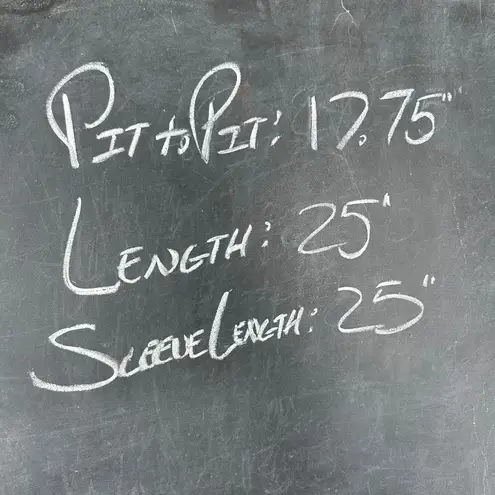 Pit to Pit: 17.75"
Length: 25"
Sleeve Length: 25"